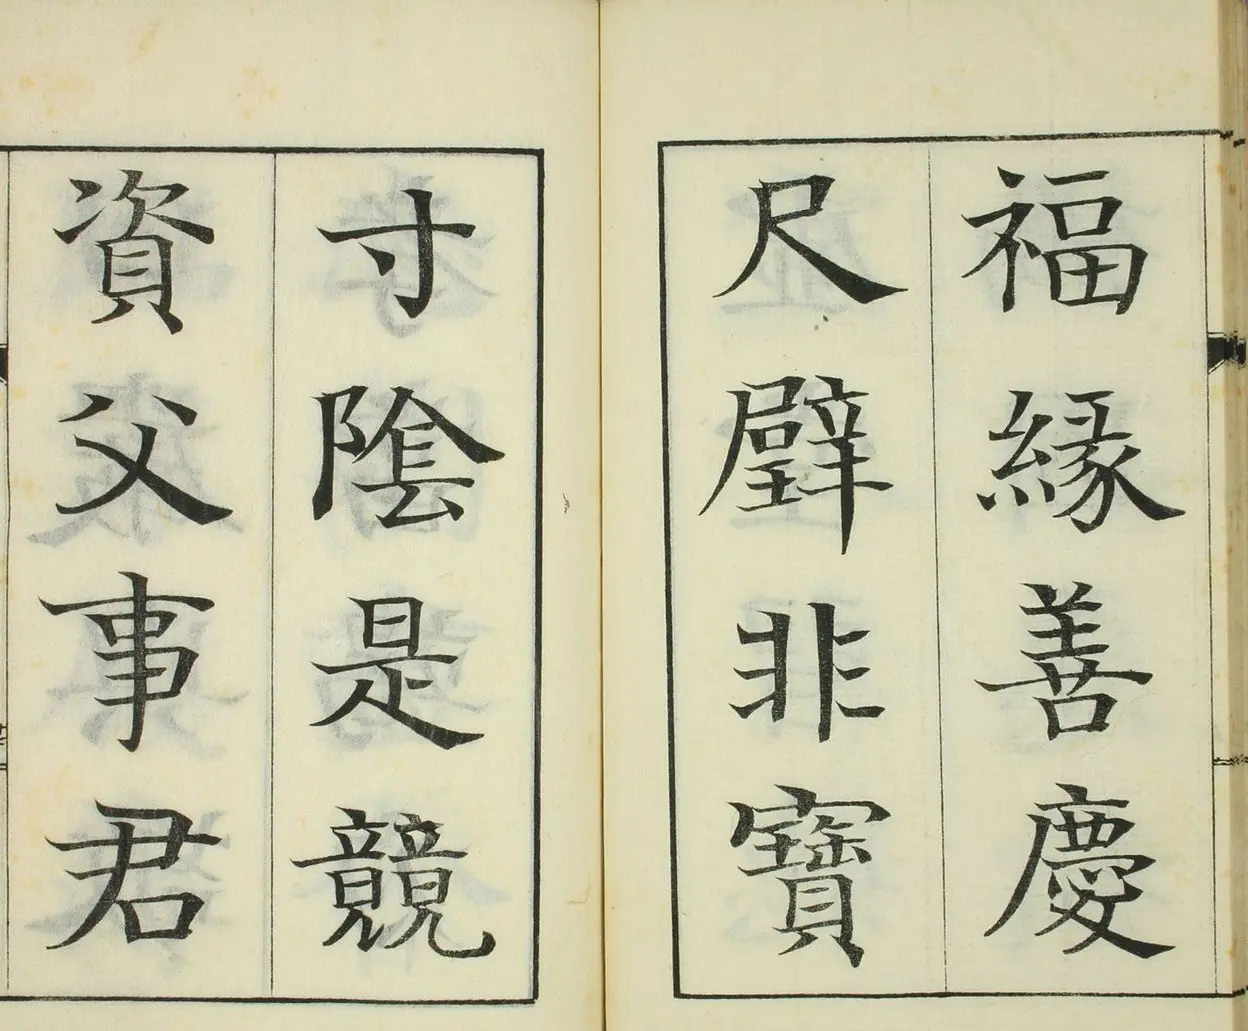 福緣善慶
尺璧非寶
寸陰是競
資父事君